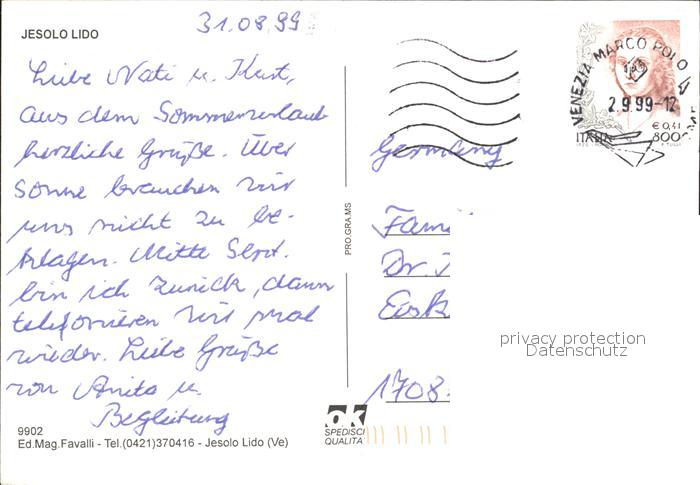 31.08.99
JESOLO LIDO
Liebe Nati u. Kurt,
aus dem Sommerurlaub
herzliche Grüße. Über
Sonne brauchen wir
uns nicht zu be-
klagen. Mitte Sept.
bin ich zurück, dann
telefonieren wir mal
wieder. Liebe Grüße
von Anita u.
Begleitung
9902
Ed.Mag.Favalli - Tel.(0421)370416 - Jesolo Lido (Ve)
PRO.GRA.MS
ok
SPEDISCI
QUALITA
VENEZIA MARCO POLO
2.9.99-12
€ 0,41
ITALIA 800
Germany
Fami
Dr.
1708
privacy protection
Datenschutz